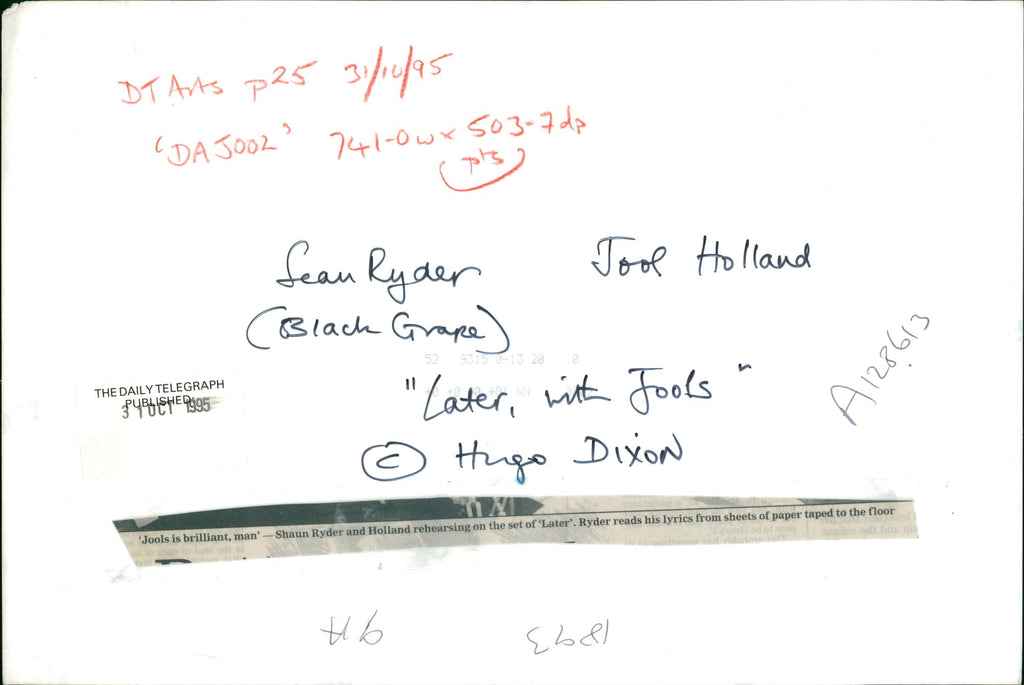 DT Arts p25 31/10/95
'DAJ002' 741-0w x 503-7dp
pts
Sean Ryder Jool Holland
(Black Grape)
52 9315 0-13 20 0
A128613
"Later, with Jools"
THE DAILY TELEGRAPH
PUBLISHED
31 OCT 1995
© Hugo DIXON
'Jools is brilliant, man' — Shaun Ryder and Holland rehearsing on the set of 'Later'. Ryder reads his lyrics from sheets of paper taped to the floor
1893